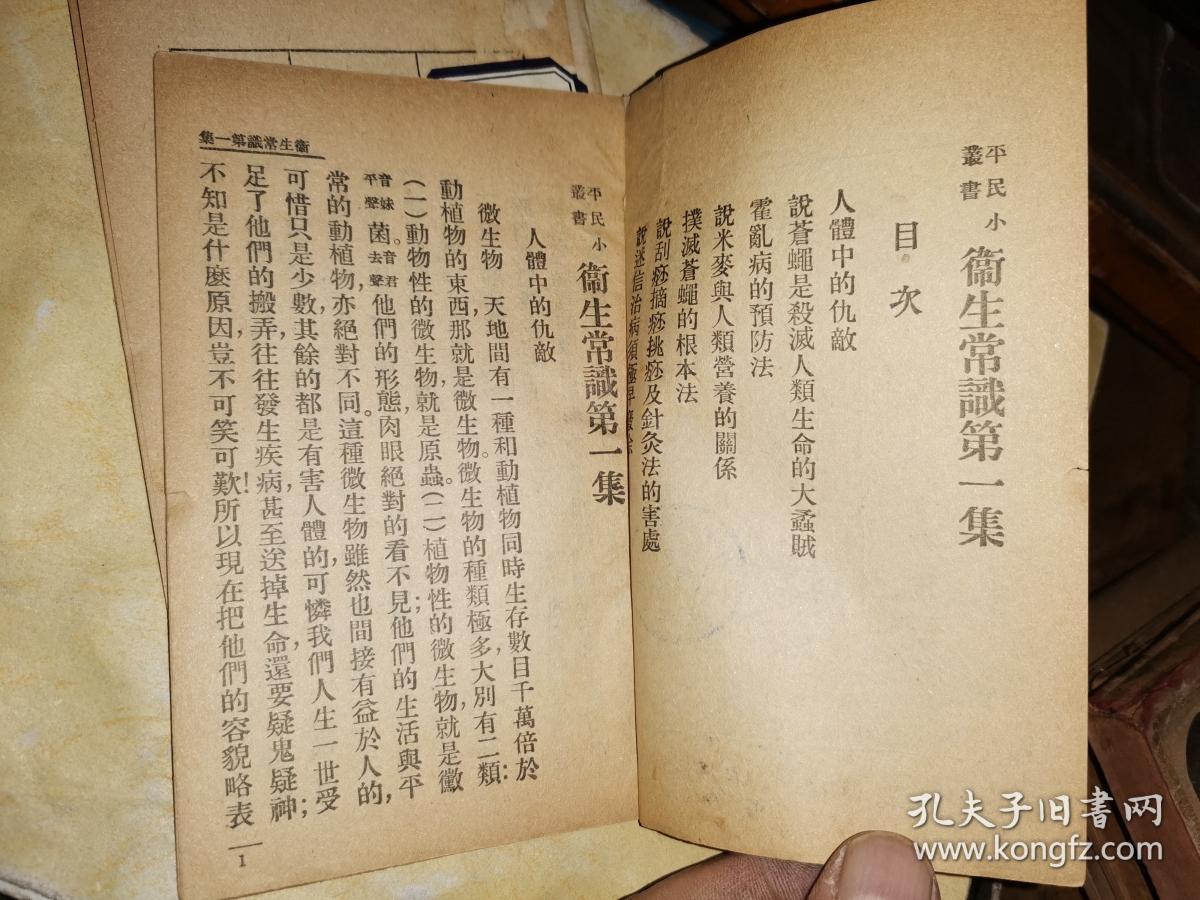 平民小
叢書
衞生常識第一集
目次
人體中的仇敵
說蒼蠅是殺滅人類生命的大蟊賊
霍亂病的預防法
說米麥與人類營養的關係
撲滅蒼蠅的根本法
說刮痧摘痧挑痧及針灸法的害處
說迷信治病須極早
平民小
叢書
衞生常識第一集
人體中的仇敵
微生物　天地間有一種和動植物同時生存數目千萬倍於
動植物的東西,那就是微生物。微生物的種類極多,大別有二類:
(一)動物性的微生物,就是原蟲。(二)植物性的微生物,就是黴
音妹平聲菌。音君去聲他們的形態,肉眼絕對的看不見;他們的生活與平
常的動植物,亦絕對不同。這種微生物雖然也間接有益於人的,
可惜只是少數,其餘的都是有害人體的,可憐我們人生一世受
足了他們的搬弄,往往發生疾病,甚至送掉生命,還要疑鬼疑神;
不知是什麼原因,豈不可笑可歎!所以現在把他們的容貌略表
衞生常識第一集
1
孔夫子旧书网
www.kongfz.com